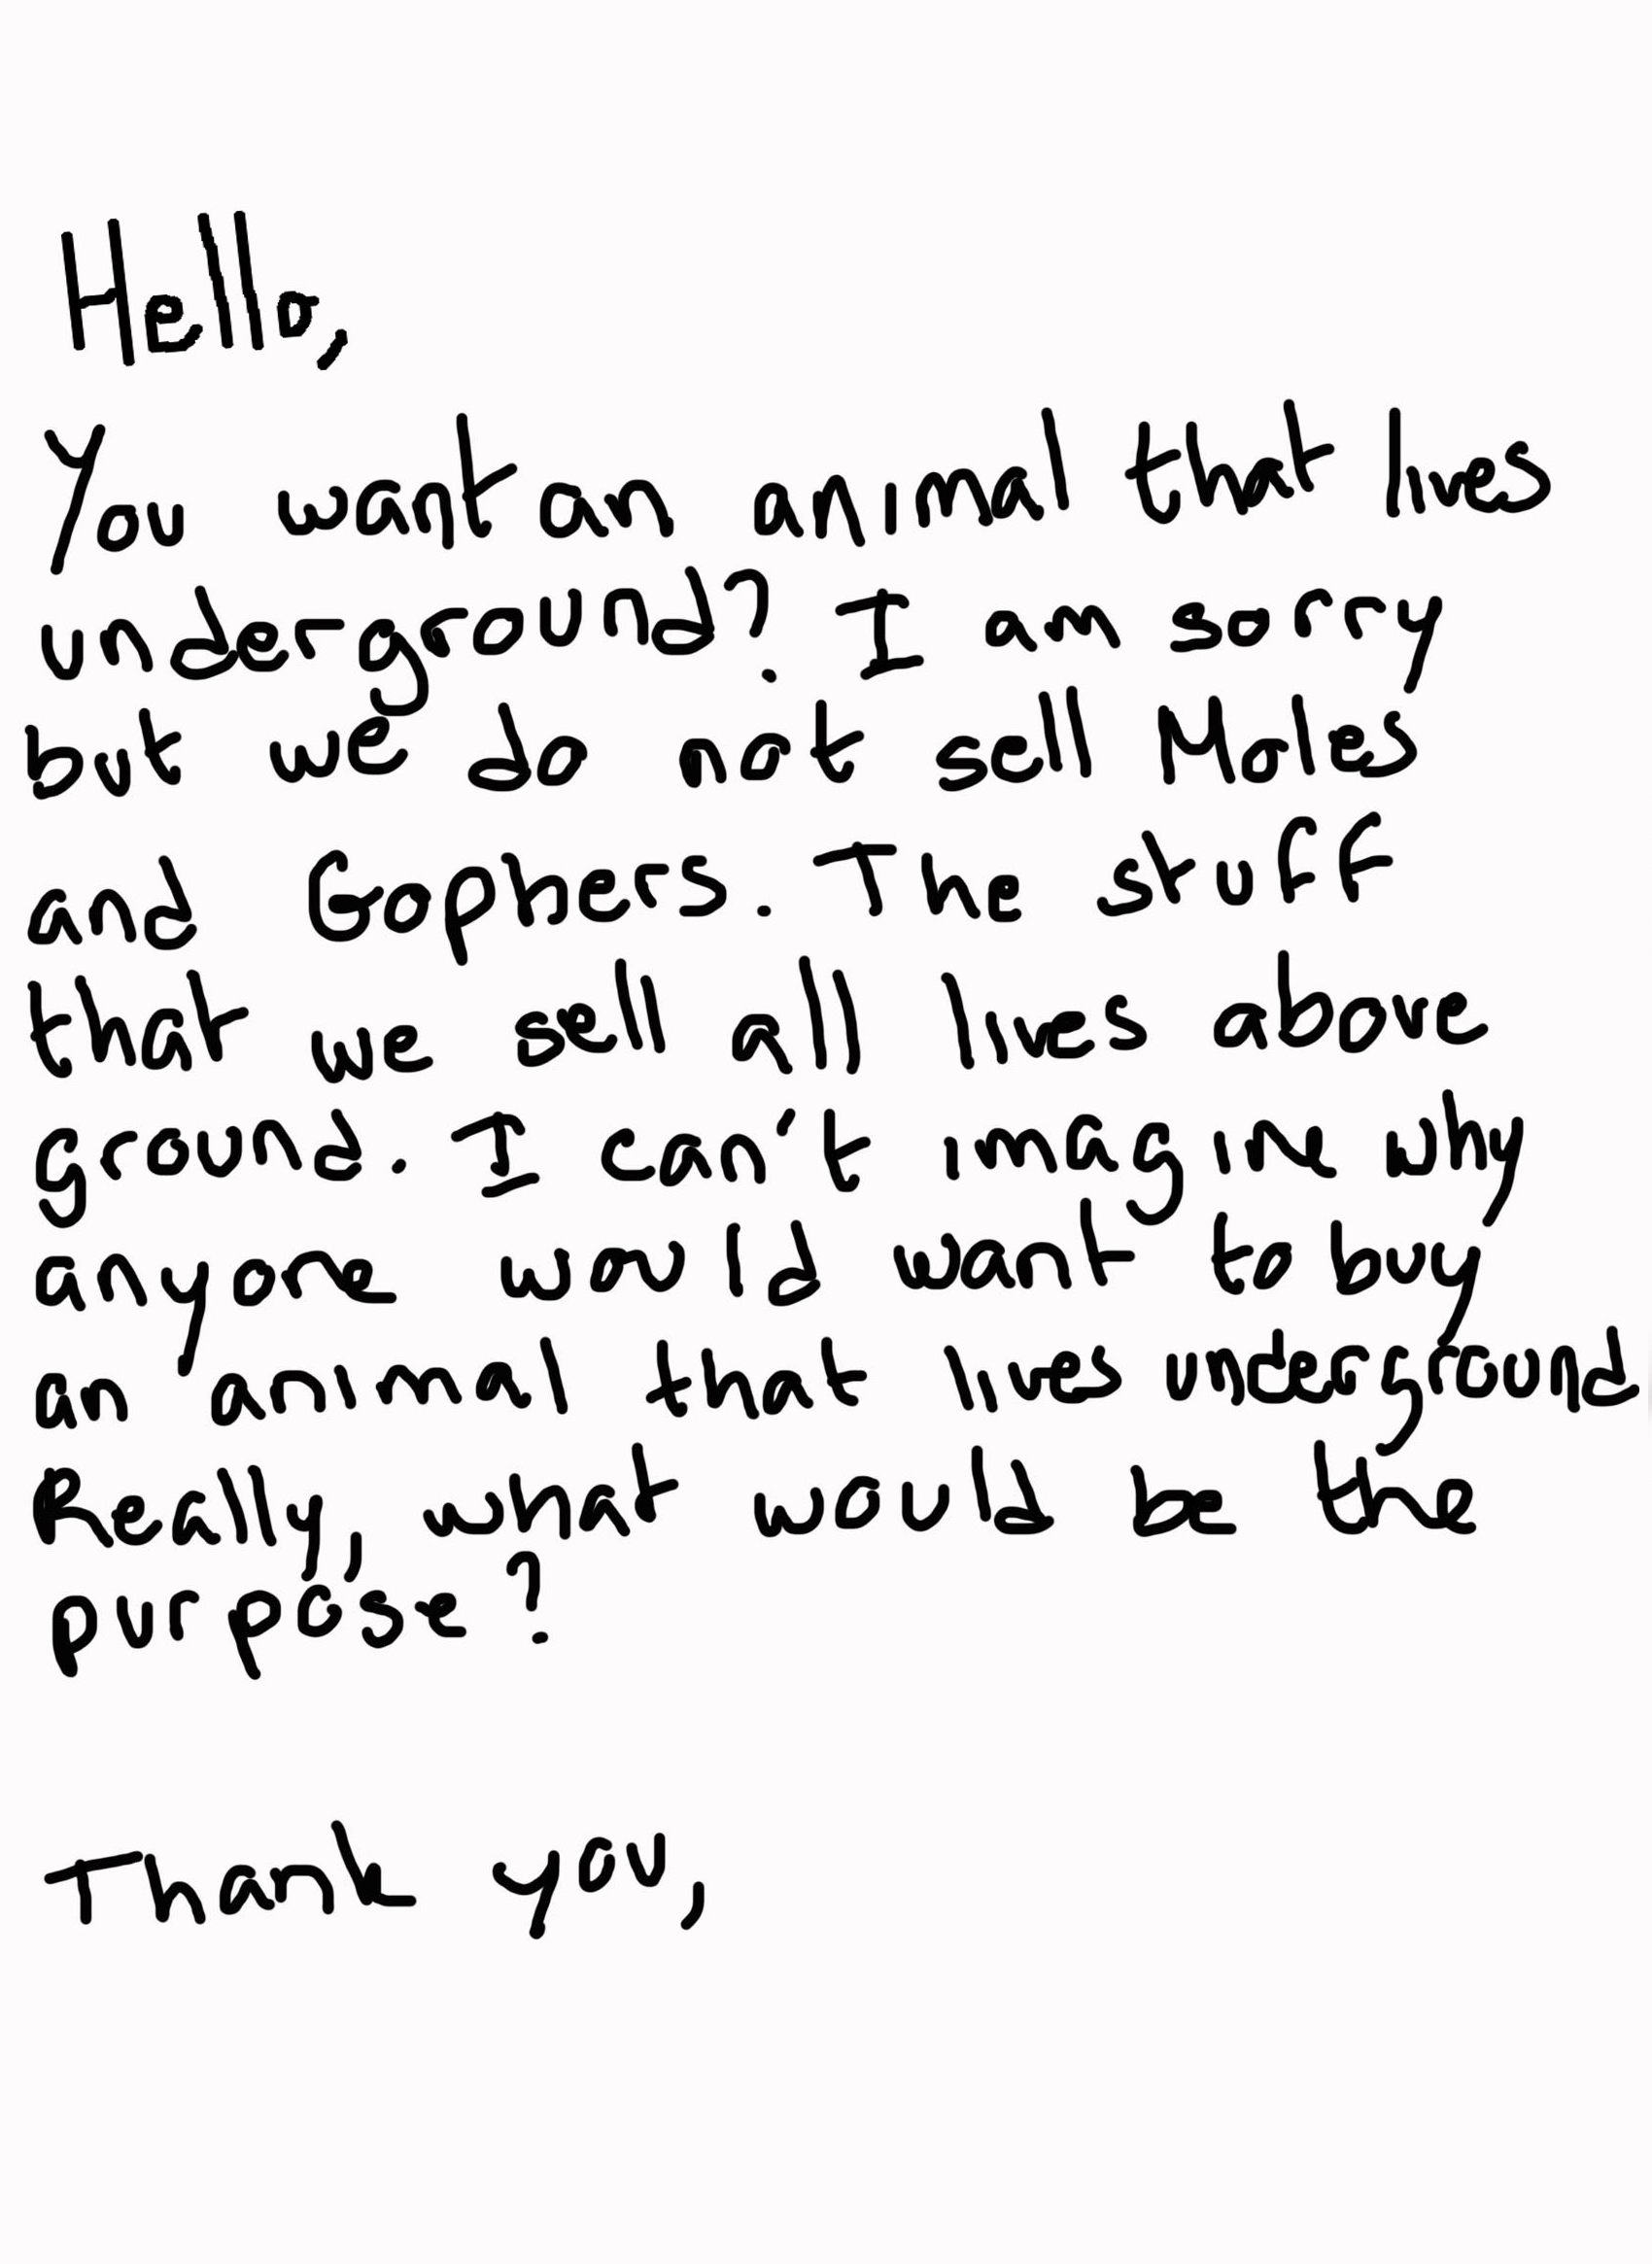 Hello,
You want an animal that lives
underground? I am sorry
but we do not sell Moles
and Gophers. The stuff
that we sell all lives above
ground. I can't imagine why
anyone would want to buy
an animal that lives underground
Really, what would be the
purpose?
Thank you,